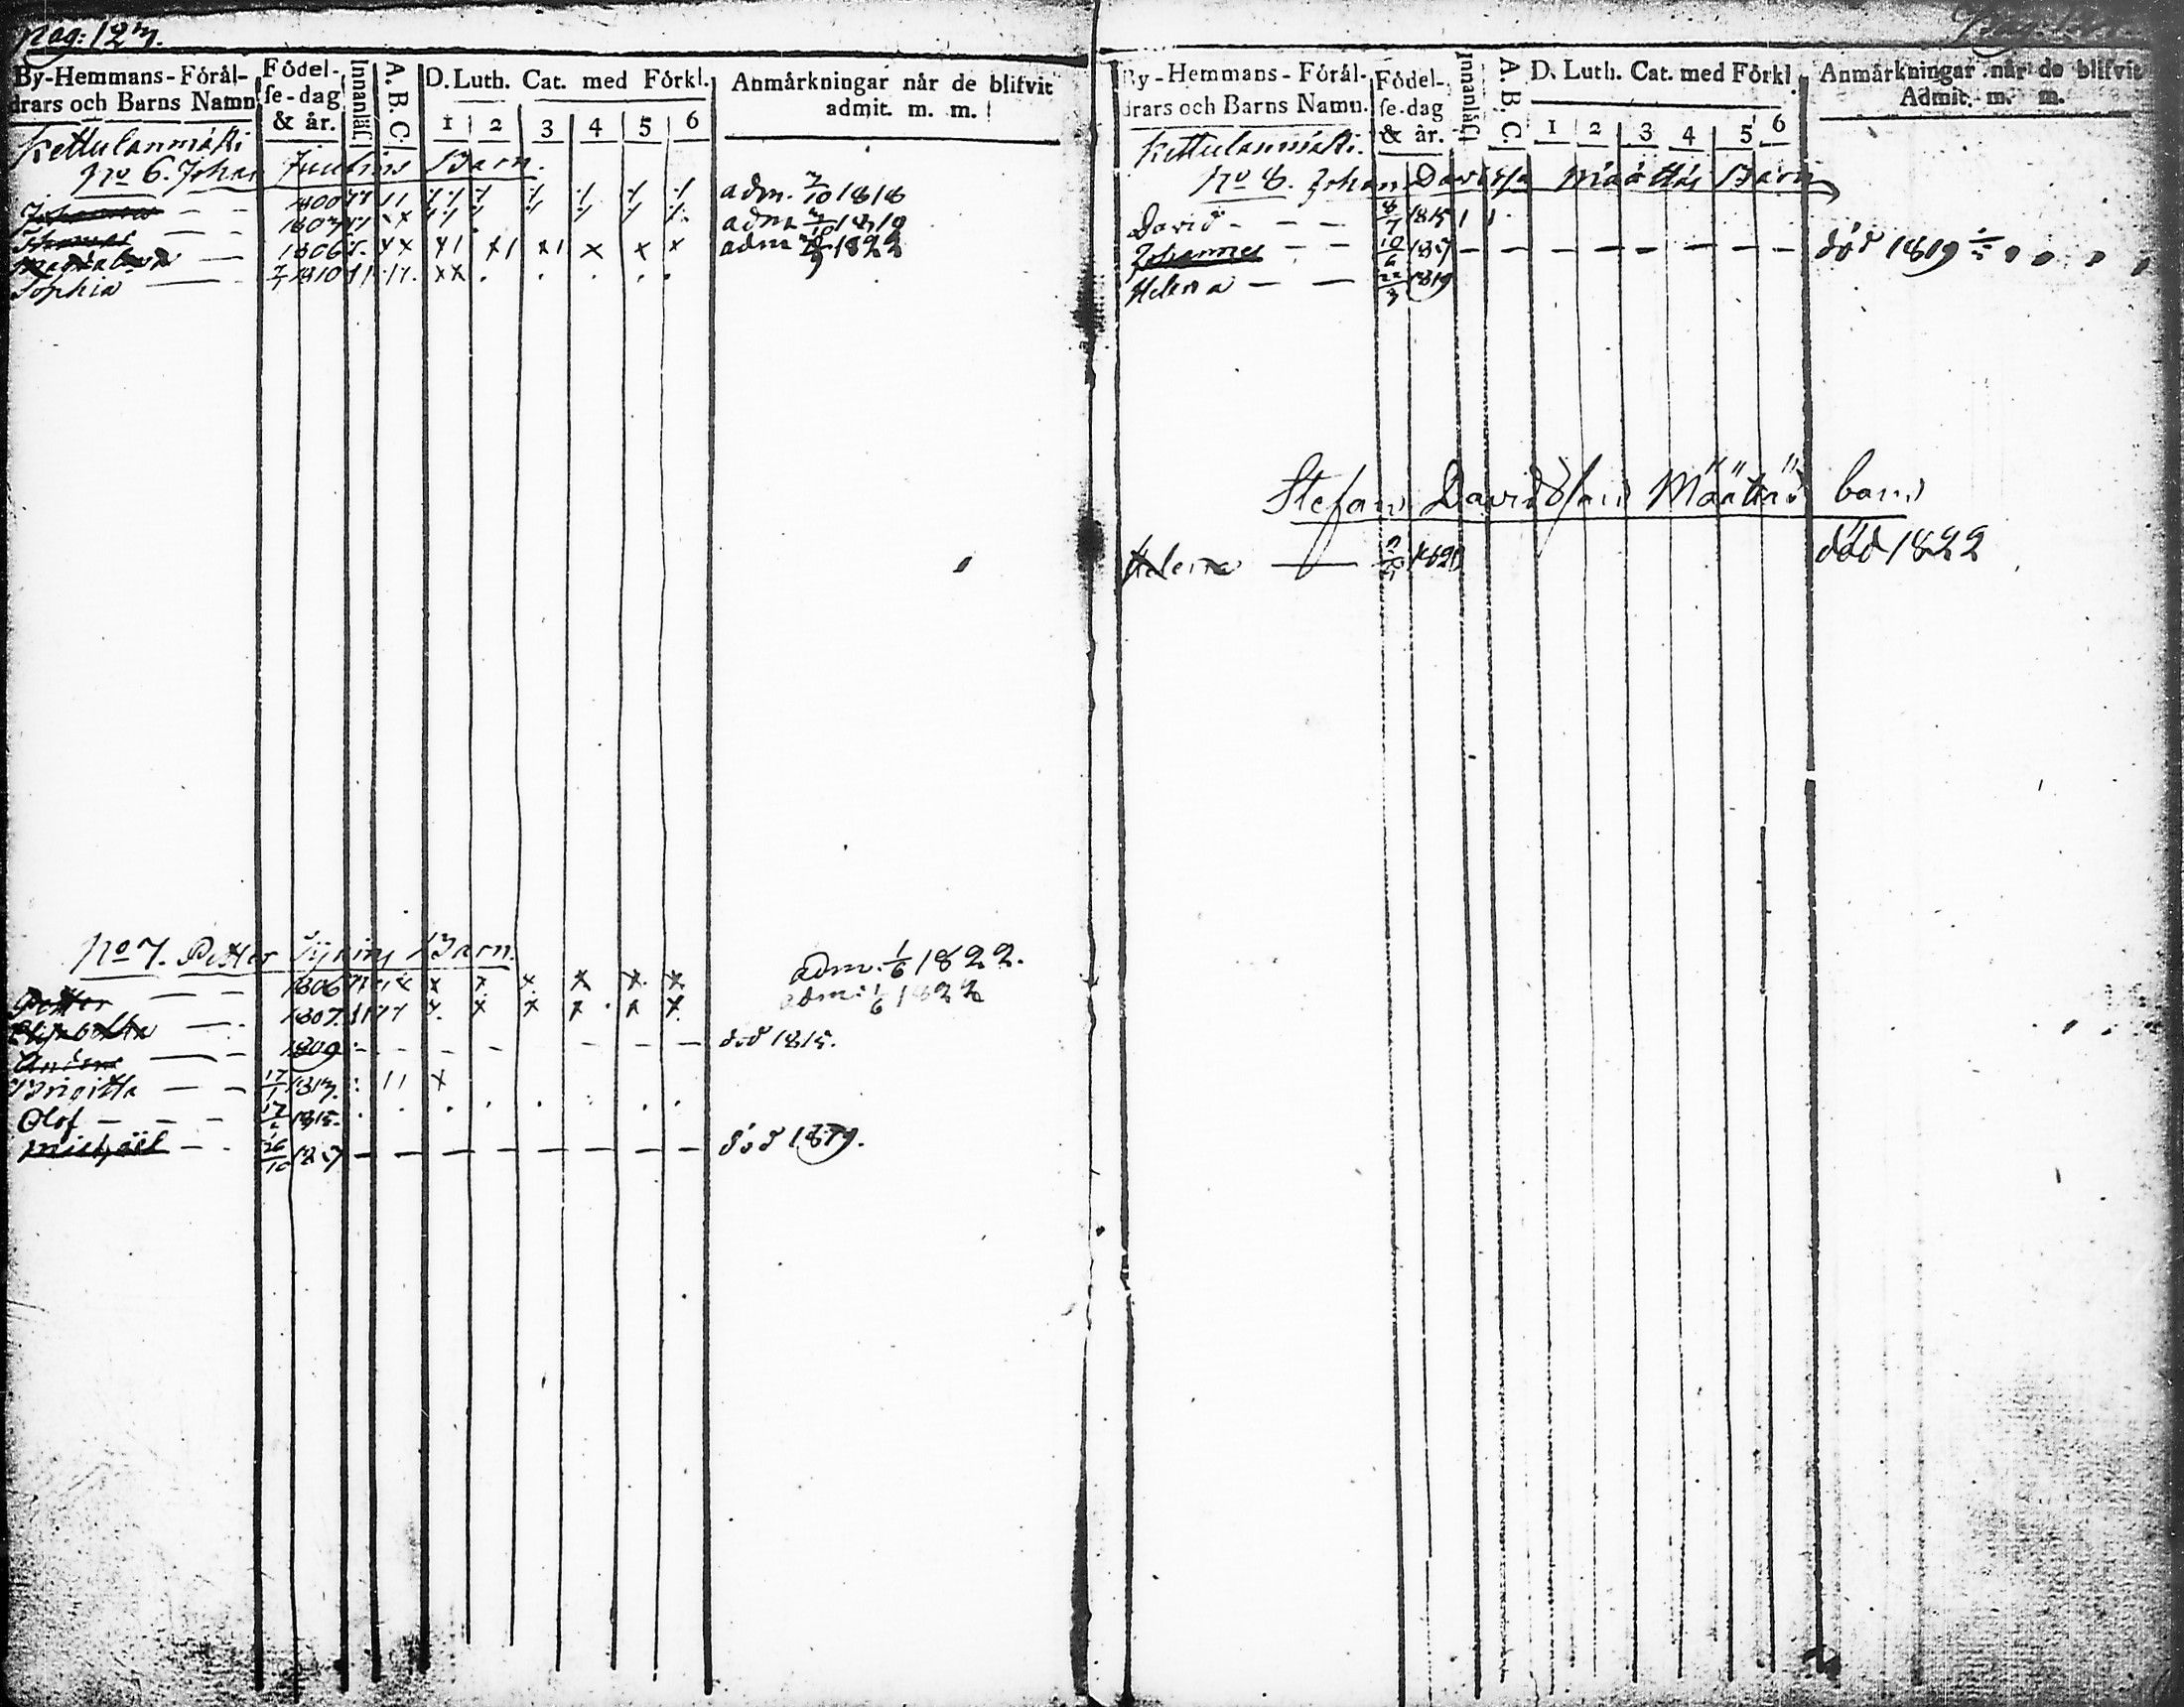 Pag: 123.
By-Hemmans-Förål-
drars och Barns Namn
Födel-
se-dag
& år.
Innanläs.
A. B. C.
D. Luth. Cat. med Förkl.
1 2 3 4 5 6
Anmärkningar når de blifvit
admit. m. m.
Kettulanmäki
No 6. Johan Juulins Barn.
1800 adm. 1818
1803 adm. 1819
Magdalena 1806 adm. 1822
Sophia 1810
No 7. Petter Tyrins Barn.
Petter 1806 x x x x x x adm. 1/6 1822.
1807. adm. 1/6 1822
Anders 1809 död 1815.
Brigitta 17/1 1813. 11 x
Olof 1815.
Michaël 26/10 1817 död 1819.
By-Hemmans-Förål-
drars och Barns Namn.
Födel-
se-dag
& år.
Innanläs.
A. B. C.
D. Luth. Cat. med Förkl.
1 2 3 4 5 6
Anmärkningar når de blifvit
Admit. m. m.
Kettulanmäki.
No 8. Johan Davidss Määttäs Barn
David 8/7 1815
Johannes 10/6 1817 död 1819
Helena 22/3 1819
Stefan Davidsson Määttäs barn
Helena död 1822